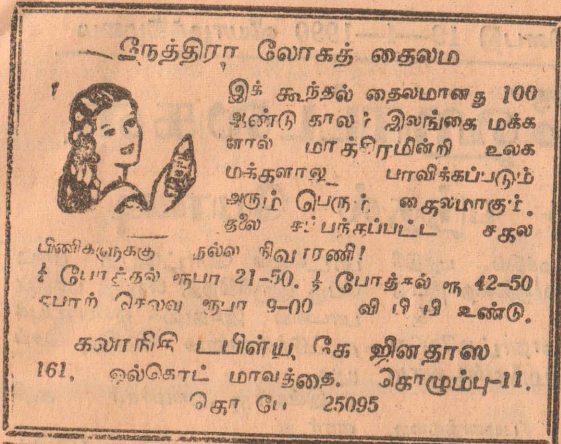 நேத்திரா லோகத் தைலம
இக் கூந்தல் தைலமானது 100
ஆண்டு காலர் இலங்கை மக்க
ளால் மாத்திரமின்றி உலக
மக்களால பாவிக்கப்படும்
அரும் பெரும் தைலமாகும்.
தலை சப்பந்தப்பட்ட சகல
பிணிகளுக்கு நல்ல நிவாரணி!
போத்தல் ரூபா 21-50. போத்தல் ரூ 42-50
செலவு ரூபா 9-00 வி பி பி உண்டு.
கலாநிதி டபிள்யு கே ஜினதாஸ
161, ஒல்கொட் மாவத்தை. கொழும்பு-11.
தொ பே 25095